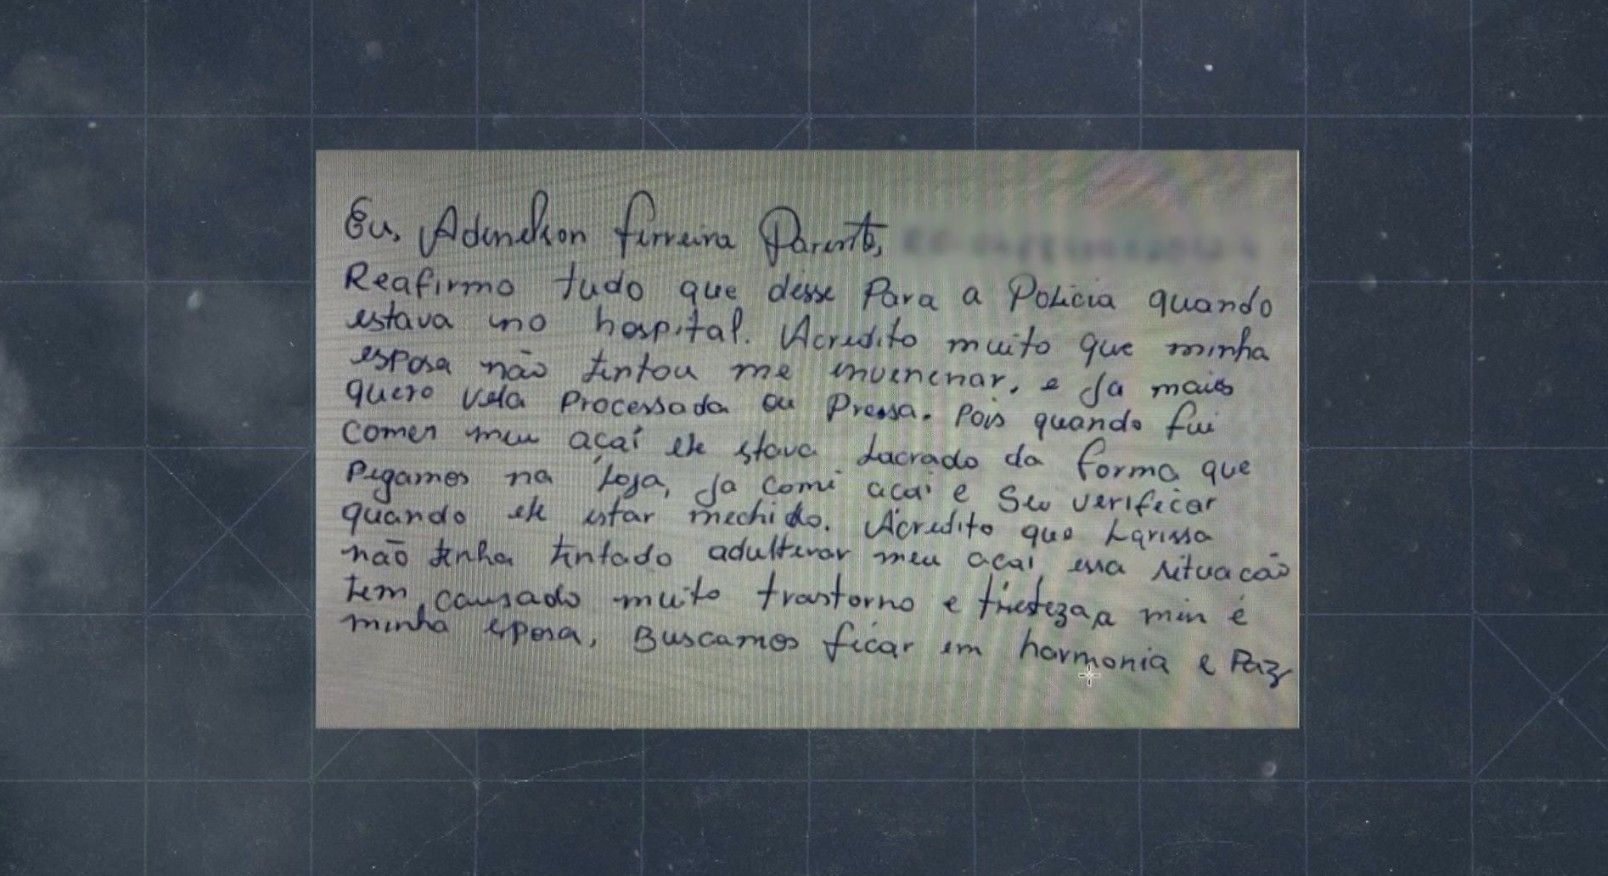 Eu, Adenilson ferreira Parente,
Reafirmo tudo que disse Para a Policia quando
estava no hospital. Acredito muito que minha
esposa não tentou me envenenar, e Ja mais
quero vela Processada ou Pressa. Pois quando fui
comer meu açaí ele stava Lacrado da forma que
Pegamos na Loja, Ja comi acai e Seu verificar
quando ele estar mechido. Acredito que Larissa
não tenha tentado adulterar meu acai essa situacão
tem causado muito trastorno e tristeza a min é
minha esposa, Buscamos ficar em harmonia e Paz